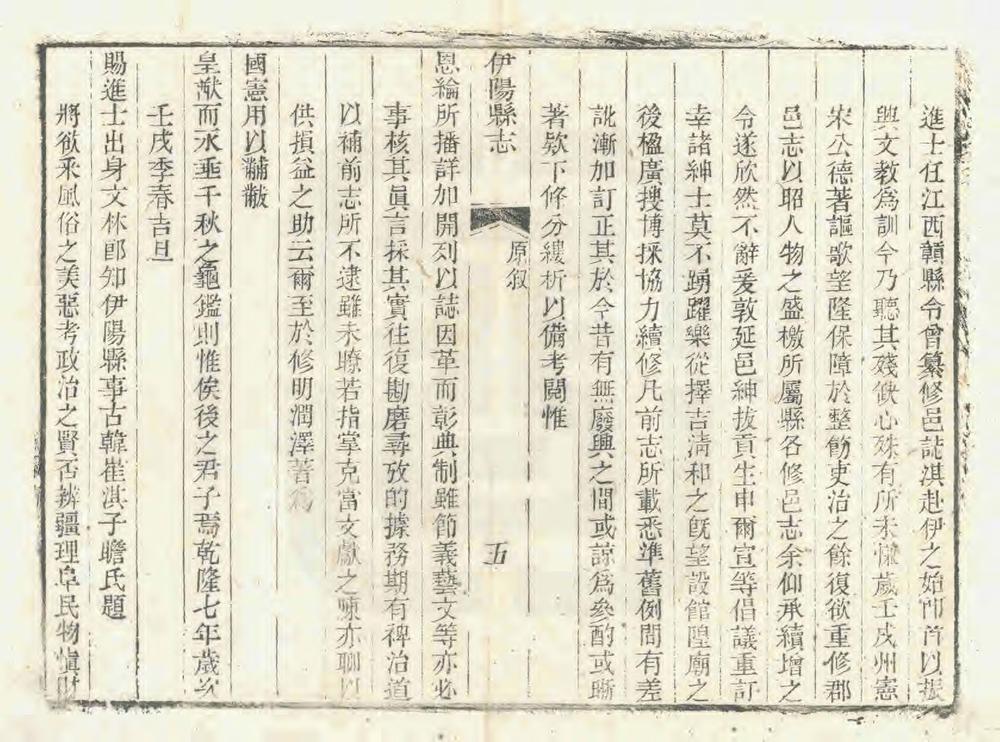 進士任江西贛縣令曾纂修邑誌淇赴伊之始即首以振
興文教為訓今乃聽其殘缺心殊有所未慊歲壬戌州憲
宋公德著謳歌望隆保障於整飭吏治之餘復欲重修郡
邑志以昭人物之盛檄所屬縣各修邑志余仰承續增之
令遂欣然不辭爰敦延邑紳拔貢生申爾宣等倡議重訂
幸諸紳士莫不踴躍樂從擇吉清和之旣望設館隍廟之
後楹廣搜博採協力續修凡前志所載悉準舊例間有差
訛漸加訂正其於今昔有無廢興之間或諒為參酌或晣
著欵下條分縷析以備考閱惟
伊陽縣志
原叙
五
恩綸所播詳加開列以誌因革而彰典制雖節義藝文等亦必
事核其眞言採其實往復勘磨尋攷的據務期有裨治道
以補前志所不逮雖未瞭若指掌克當文獻之嗛亦聊以
供損益之助云爾至於修明潤澤著為
國憲用以黼黻
皇猷而永垂千秋之龜鑑則惟俟後之君子焉乾隆七年歲次
壬戌季春吉旦
賜進士出身文林郎知伊陽縣事古韓崔淇子瞻氏題
將欲采風俗之美惡考政治之賢否辨疆理阜民物愼財